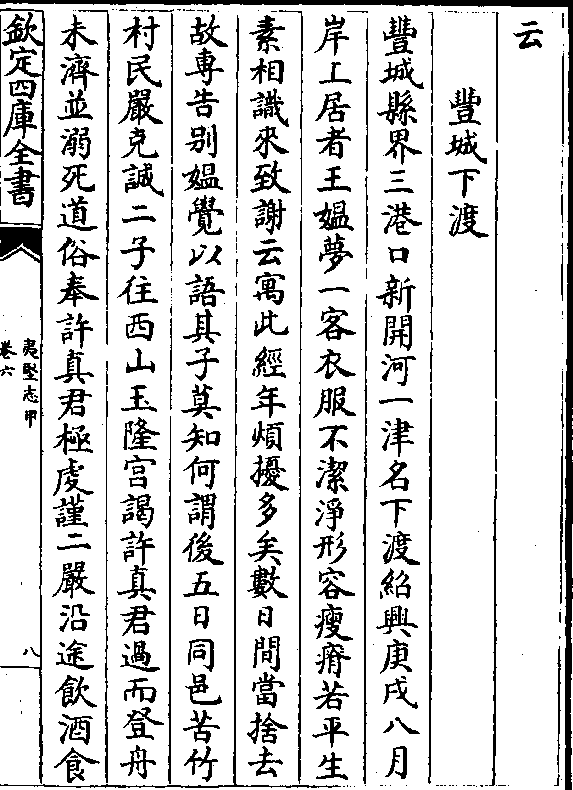 云
豐城下渡
豐城縣界三港口新開河一津名下渡紹興庚戌八月
岸上居者王媪夢一客衣服不潔淨形容瘦瘠若平生
素相識來致謝云寓此經年煩擾多矣數日間當捨去
故專告别媪覺以語其子莫知何謂後五日同邑苦竹
村民嚴克誠二子往西山玉隆宫謁許真君過而登舟
未濟並溺死道俗奉許真君極虔謹二嚴沿途飲酒食
欽定四庫全書
夷堅志甲
卷六
八